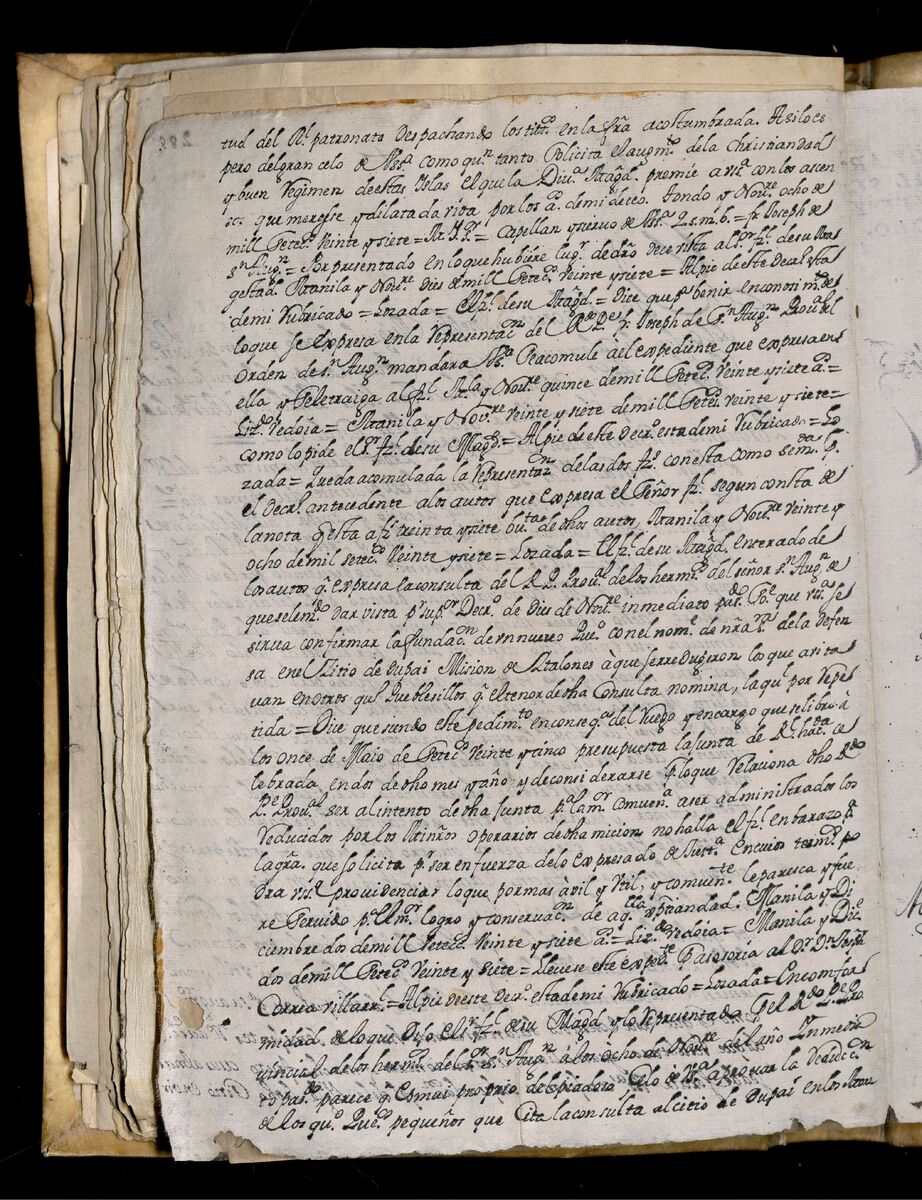 tud del Rl. patronato despachando los titt. en la fra acostumbrada. Asi lo es
pero del gran celo de Vssa. como qn. tanto solicita el augmo. de la christiandad
y buen Regimen de estas Islas el que la Diva. Magd. premie a Vsa. con los ascen
sos. que merese y dilatada vida por los as. de mi deseo. tondo y Novre. ocho de
mill setecs. Veinte y siete = M. I. Sr. = Capellan y siervo de Vssa. Q. s. m. b. = fr. Joseph de
Sn. Augn. = Por presentado en lo que hubiere lugr. de dro de ce vista al sor. fl. de su Mas
gestad. Manila y Novre. dies de mill setecs. veinte y siete = Al pie de este Decal. esta
de mi Rubricado = Lozada = El fl. de su Magd. = Dice que pa. benir en conosimto. de
lo que se expresa en la Representacn. del Rdo. Pe. fr. Joseph de Sn. Augn. Provl. del
Orden de Sn. Augn. mandara Vsa. se acomule à el expediente que expresa en
ella y se le traiga al fl. Mla. y Novre. quince de mill setecs. Veinte y siete as. =
Lizdo. Vedoia = Manila y Novre. Veinte y siete de mill setecs. veinte y siete =
como lo pide el sr. fl. de su Magd. = Al pie de este Decro. esta de mi Rubricado = Lo
zada = Queda acomulada la Representan. de las dos fxs. con esta como se mda. pr.
el Decrl. antecedente a los autos que expresa el Señor fl. segun consta de
la nota qe esta a fx. treinta y siete bta. de dhos autos, Manila y Novre. Veinte y
ocho de mil setecs. Veinte y siete = Lozada = El fl. de su Magd. enterado de
los autos q. expresa la consulta del R. P. Provl. de los hermos. del señor Sn. Augn. de
que se le mdo. dar vista pr. supor. Decro. de dies de Novre. inmediato pasdo. sre. que Vsa. se
sirva confirmar la fundacn. de vn nuevo Pueo. con el nome. de nra sra. de la defen
sa en el sitio de dupai Mision de Ytalones à que se rredugeron los que avita
van en otros qto. Pueblesillos q. el tenor de dha Consulta nomina, la ql. por Repe
tida = Dice que siendo este pedimto. en conseqa. del Ruego y encargo que se libro à
los once de Maio de setecs. Veinte y cinco presupuesta la Junta de Rl. hasda. ce
lebrada, en dos de dho mes y año y de considerarse pr. lo que Relaciona dho Rdo
Pe. Provl. ser al intento de dha Junta pa. la mor. comuena. a ser administrados los
Reducidos por los Minros Operarios de dha micion no halla el fl. enbarazo pa.
la gra. que solicita pr. ser en fuerza de lo expresado de Justa. En cuios termos. po
dra vsa. providenciar lo que por mas àbil y vtil, y comuente. le paresca y fue
re servido pa. el mor. logro y conservacn. de aqlla. xptiandad. Manila y Di
ciembre dos de mill setecs. Veinte y siete as. = Lizdo. Vedoia = Manila y Dice.
dos de mill setecs. Veinte y siete = Llevese este expte. Pasesoria al Dr. Dn. Joseph
Correa villarrl. = Al pie de este Decro. esta de mi Rubricado = Lozada = En confor
midad de lo que Dijo el sr. fl. de su Magd. y lo Representado Pr el Rdo. Pe. Pro
vincial de los hermos. del sor. Sn. Augn. à los Ocho de Novre. del año Inmedia
to pasdo. parece q. es mui proprio del piadoso Celo de Vsa. aprovar la Reduccn.
de los qto. Pueos. pequeños que Cita la consulta al citio de Dupai en los Mon